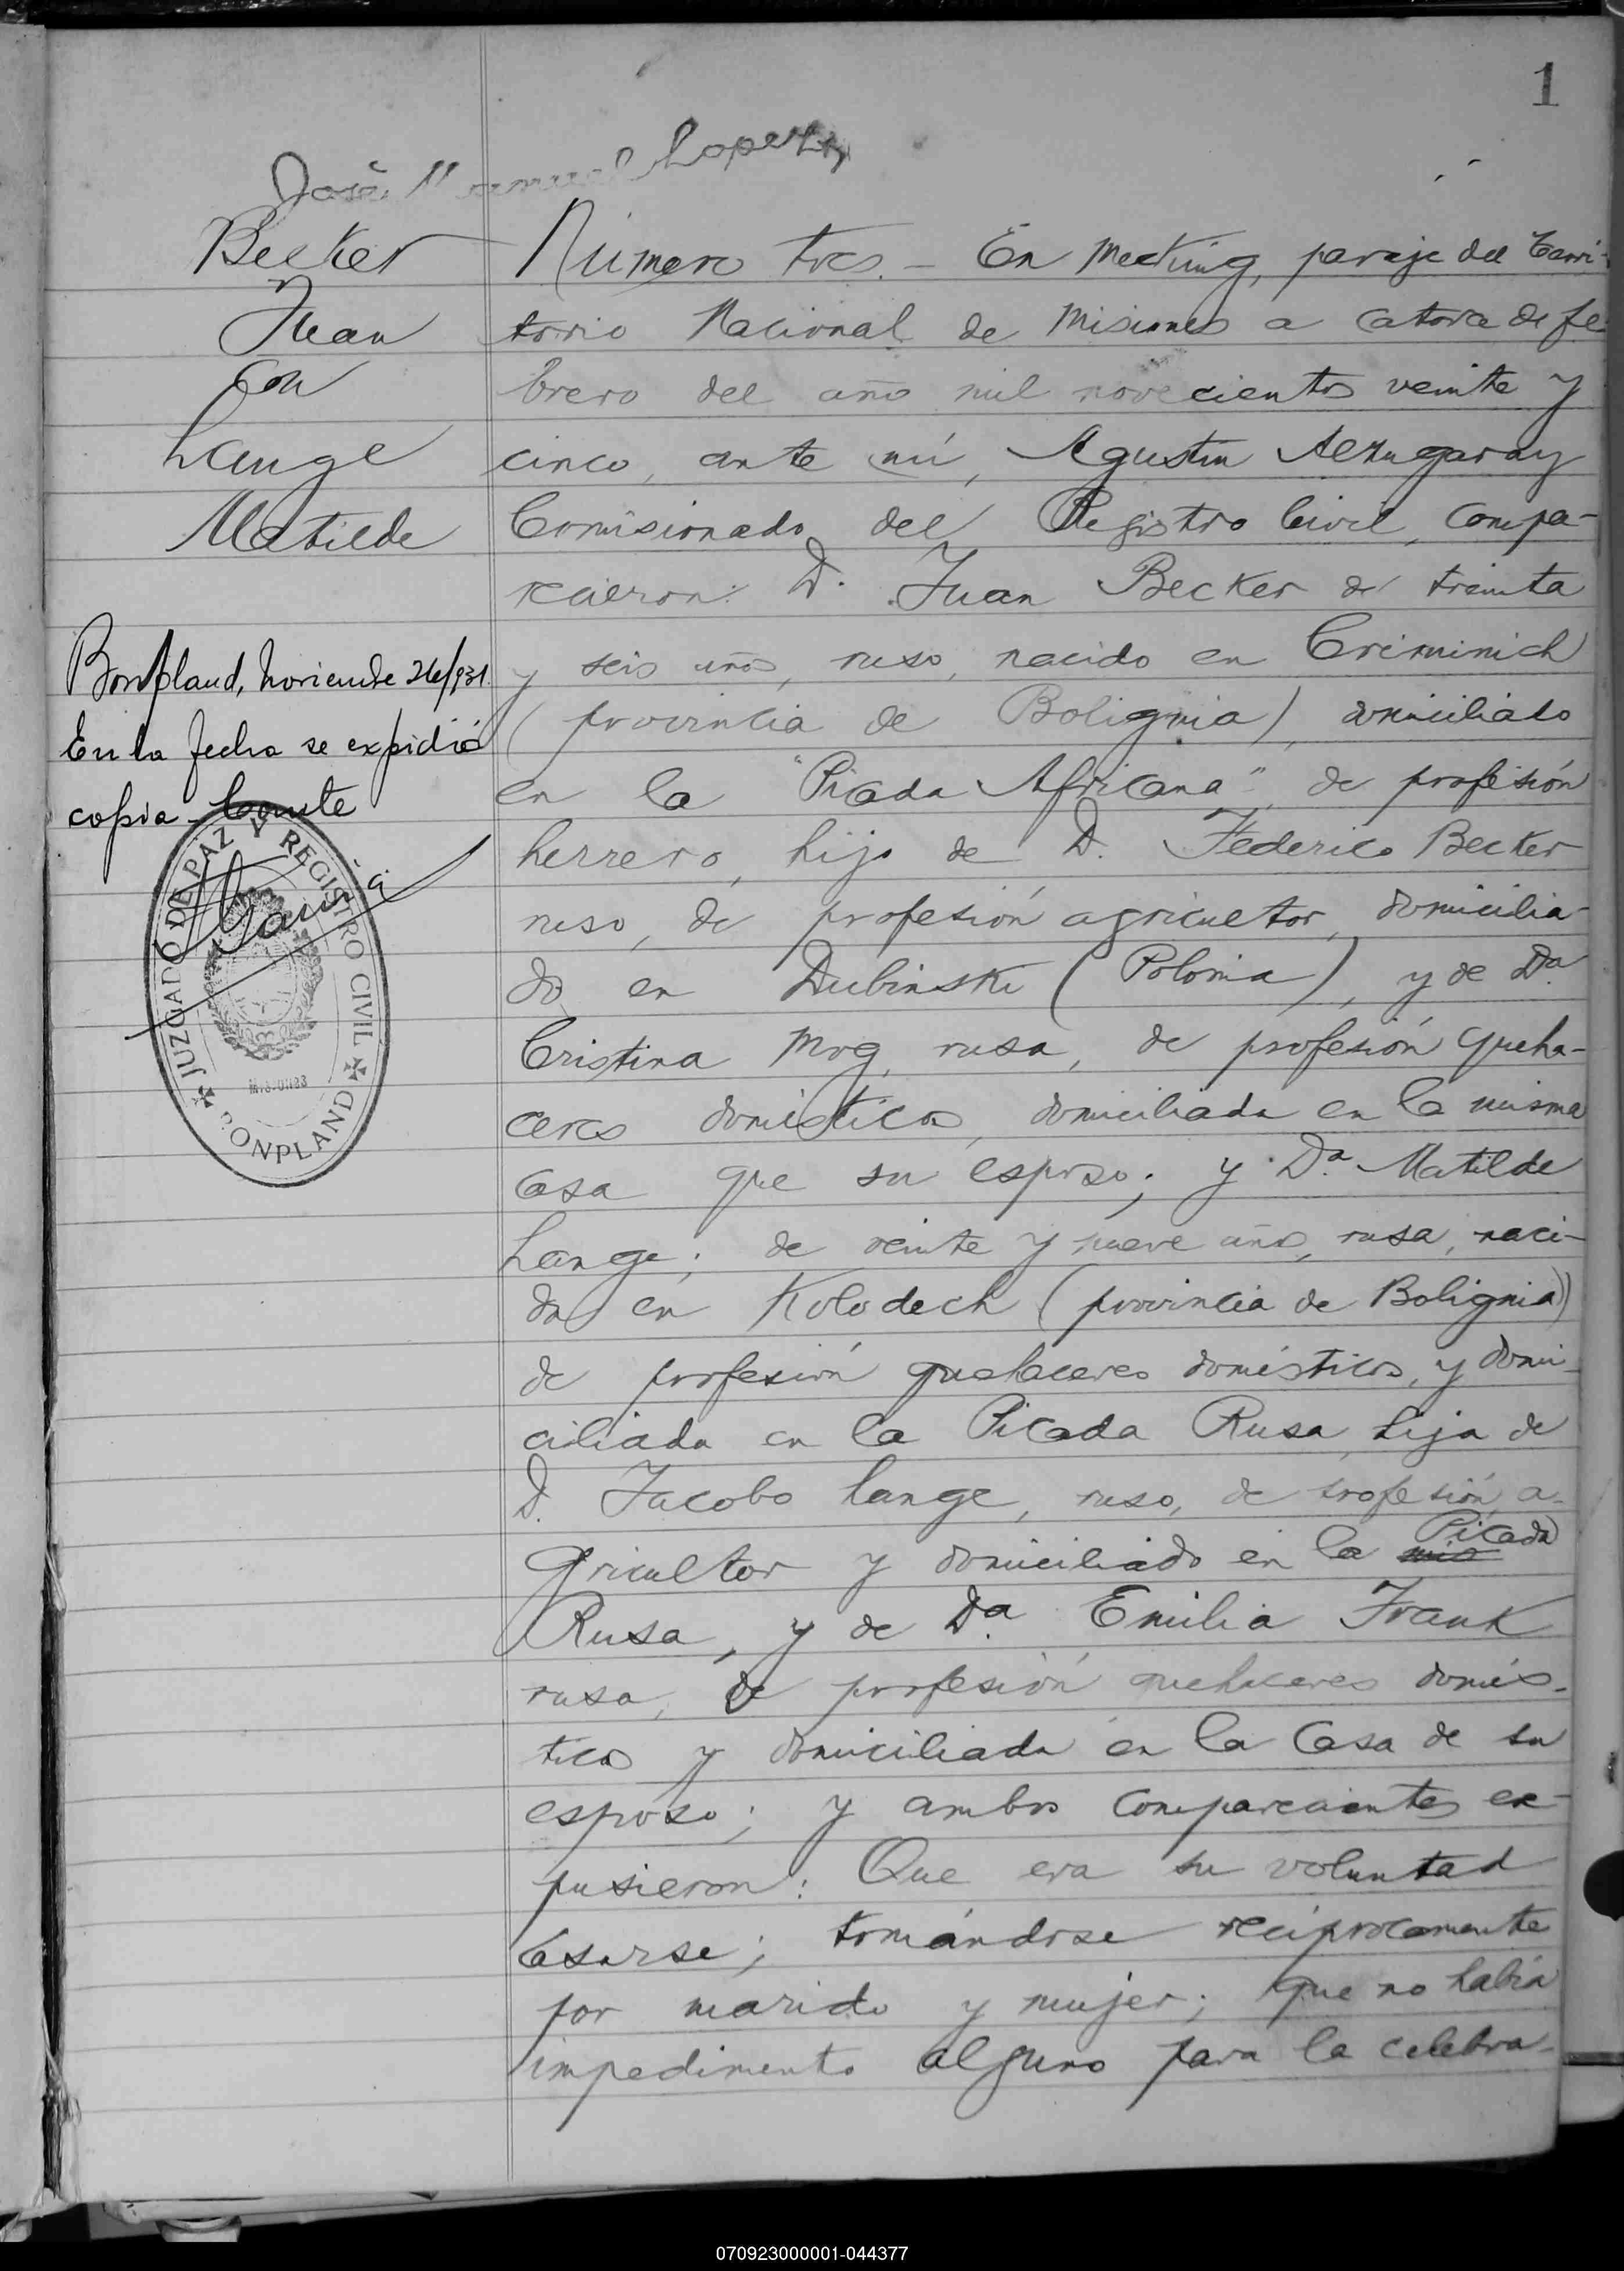 1
José Manuel Lopez
Becker
Juan
con
Lange
Matilde
Número tres.- En Mecking, paraje del Terri-
torio Nacional de Misiones a catorce de fe
brero del año mil novecientos veinte y
cinco, ante mí, Agustin
Comisionado del Registro Civil, compa-
recieron: D. Juan Becker de treinta
y seis años, ruso, nacido en Criminich
(provincia de Bolignia), domiciliado
en la "Picada Africana", de profesión
herrero, hijo de D. Federico Becker
ruso, de profesión agricultor, domicilia-
do en Dubinski (Polonia), y de Da.
Cristina Mrg, rusa, de profesión queha-
ceres domésticos, domiciliada en la misma
casa que su esposo; y Da. Matilde
Lange; de veinte y nueve años, rusa, naci-
da en Kolodech (provincia de Bolignia)
de profesión quehaceres domésticos, y domi-
ciliada en la Picada Rusa, hija de
D. Jacobo Lange, ruso, de profesión a-
gricultor y domiciliado en la Picada
Rusa, y de Da. Emilia Frank
rusa, de profesión quehaceres domés-
ticos y domiciliada en la casa de su
esposo; y ambos comparecientes ex-
pusieron: Que era su voluntad
casarse; tomándose recíprocamente
por marido y mujer; que no había
impedimento alguno para la celebra-
Bonpland, Noviembre 26/931.
En la fecha se expidió
copia. Conste
JUZGADO DE PAZ Y REGISTRO CIVIL
MISIONES
BONPLAND
070923000001-044377